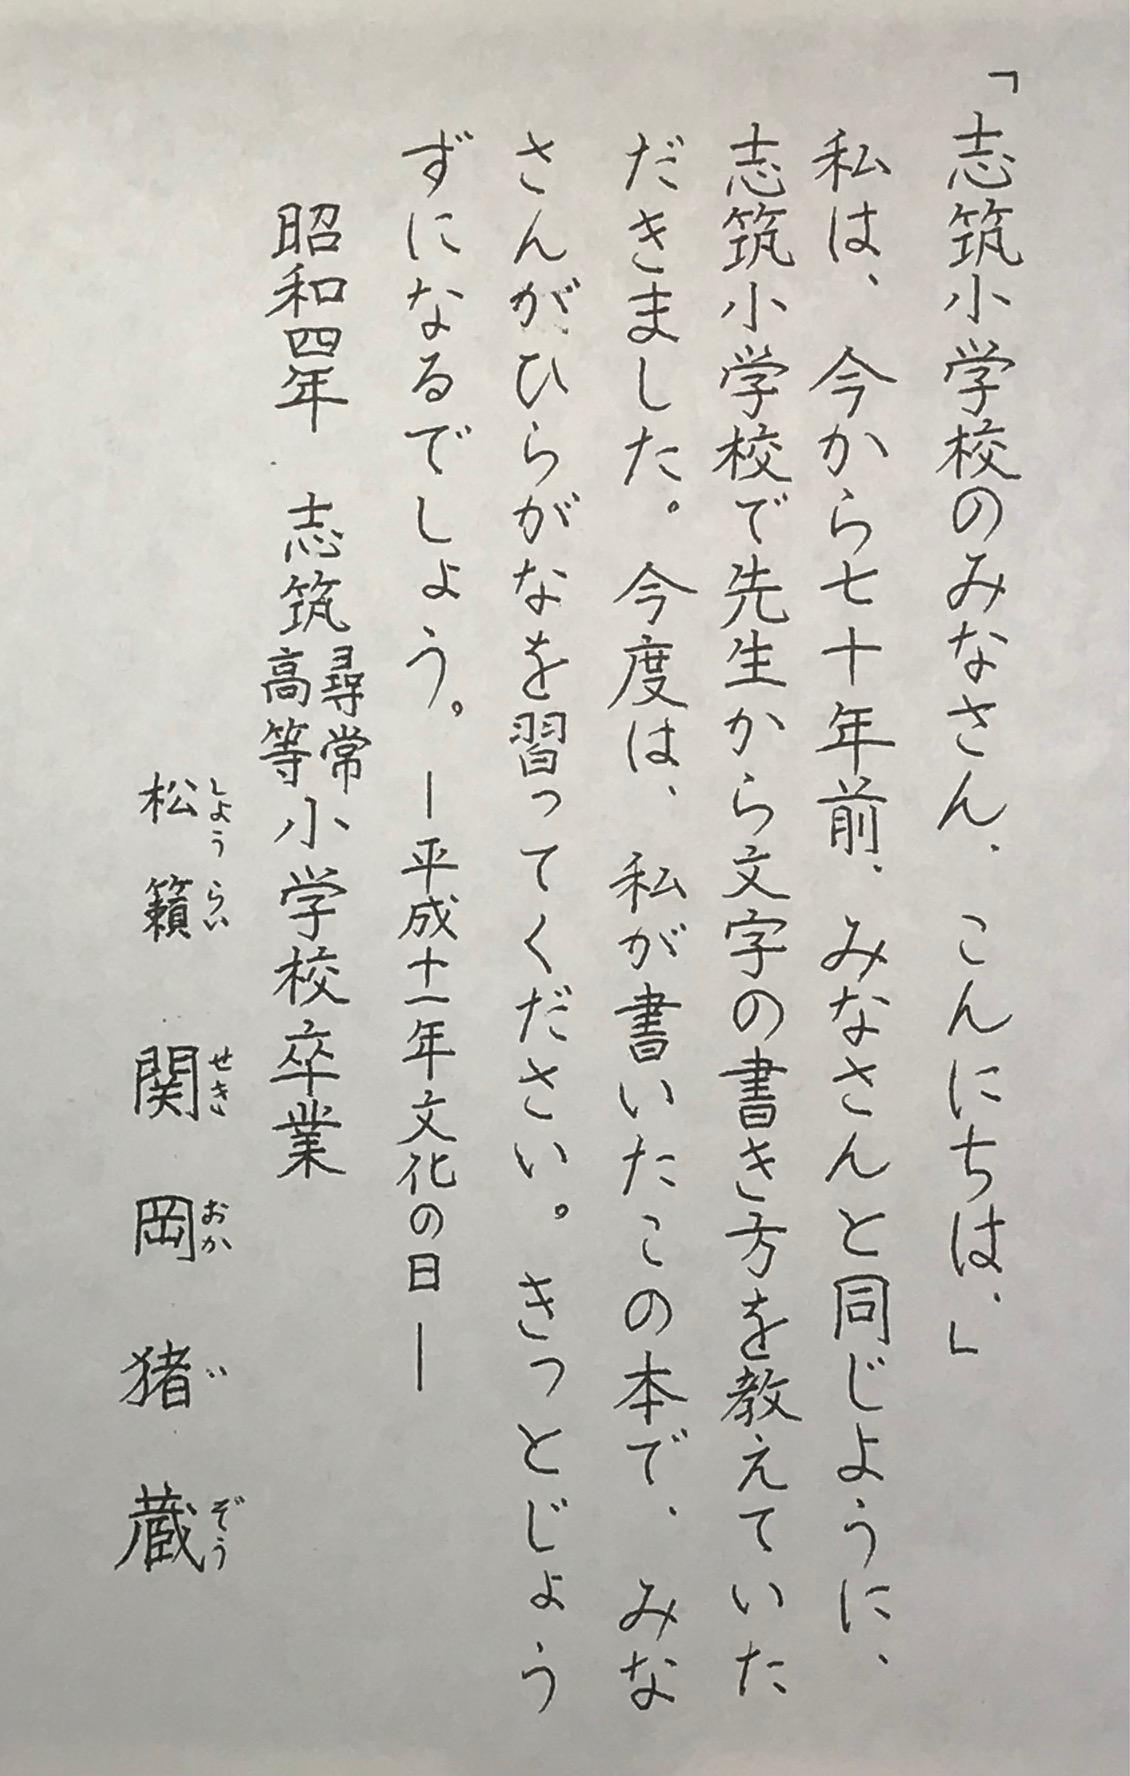 「志筑小学校のみなさん、こんにちは、」
私は、今から七十年前、みなさんと同じように、
志筑小学校で先生から文字の書き方を教えていた
だきました。今度は、私が書いたこの本で、みな
さんがひらがなを習ってください。きっとじょう
ずになるでしょう。ー平成十一年文化の日ー
昭和四年 志筑尋常高等小学校卒業
松籟 関岡猪蔵
しょうらい せきおかいぞう